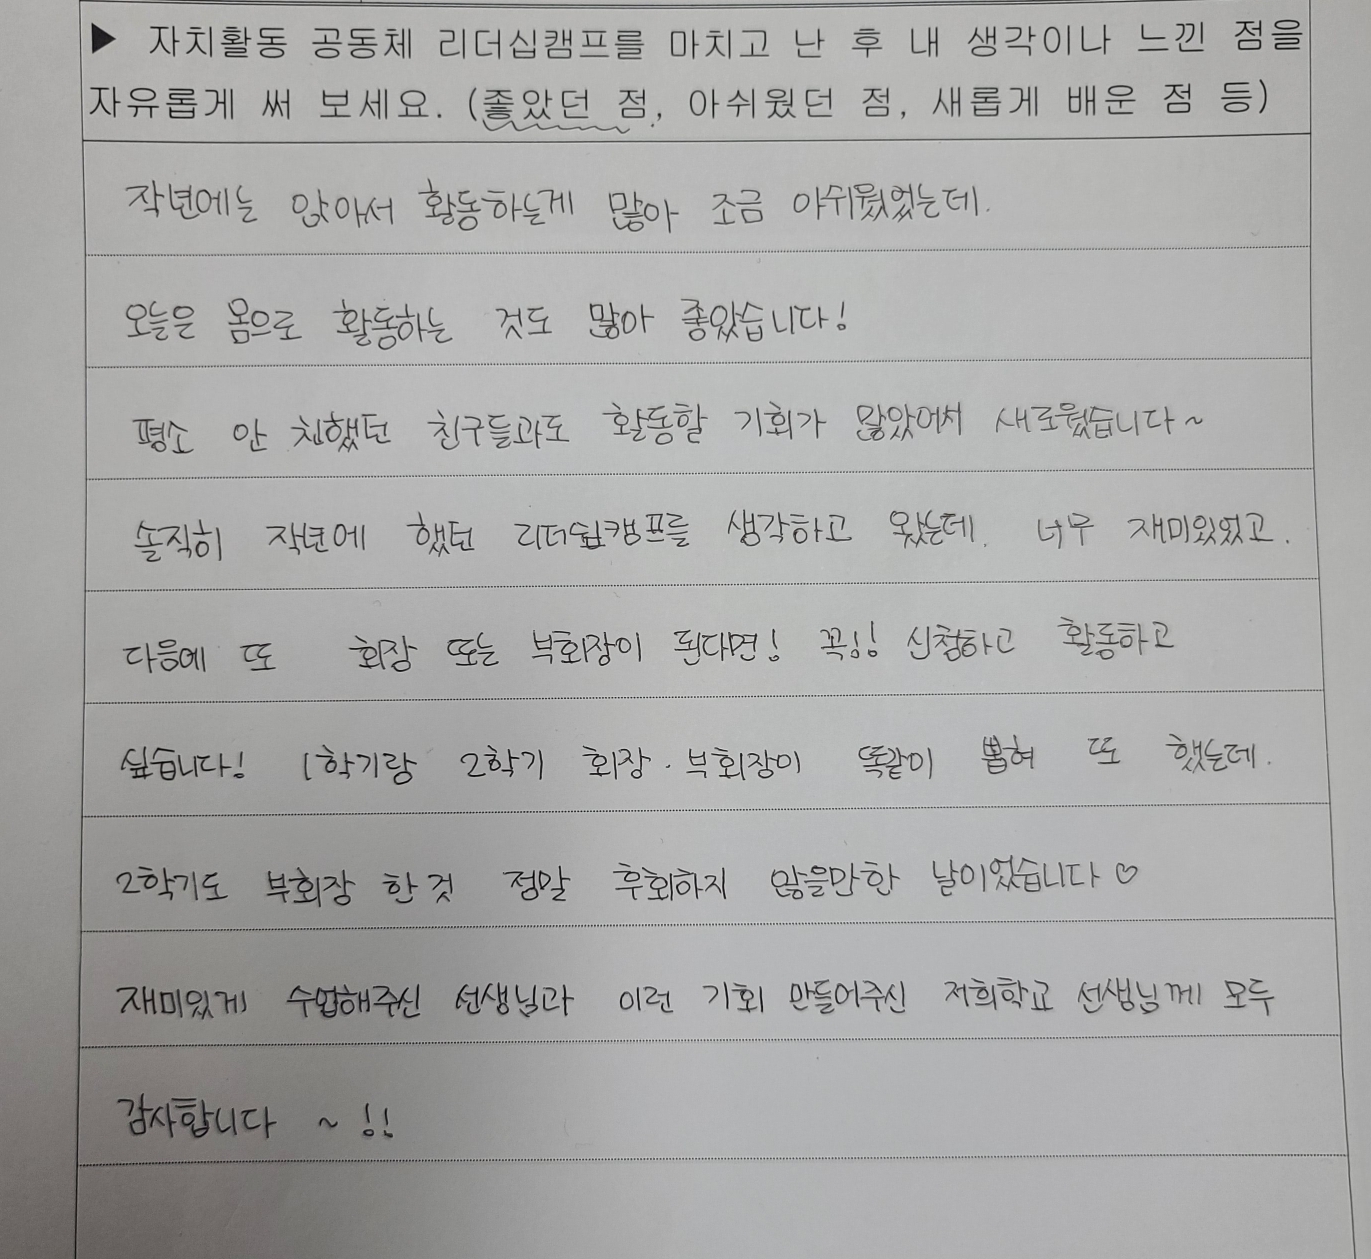 ▶ 자치활동 공동체 리더십캠프를 마치고 난 후 내 생각이나 느낀 점을
자유롭게 써 보세요. (좋았던 점, 아쉬웠던 점, 새롭게 배운 점 등)
작년에는 앉아서 활동하는게 많아 조금 아쉬웠었는데.
오늘은 몸으로 활동하는 것도 많아 좋았습니다!
평소 안 친했던 친구들과도 활동할 기회가 많았어서 새로웠습니다~
솔직히 작년에 했던 리더쉽캠프를 생각하고 왔는데. 너무 재미있었고.
다음에 또 회장 또는 부회장이 된다면! 꼭!! 신청하고 활동하고
싶습니다! 1학기랑 2학기 회장·부회장이 똑같이 뽑혀 또 했는데.
2학기도 부회장 한것 정말 후회하지 않을만한 날이었습니다♡
재미있게 수업해주신 선생님과 이런 기회 만들어주신 저희학교 선생님께 모두
감사합니다 ~ !!